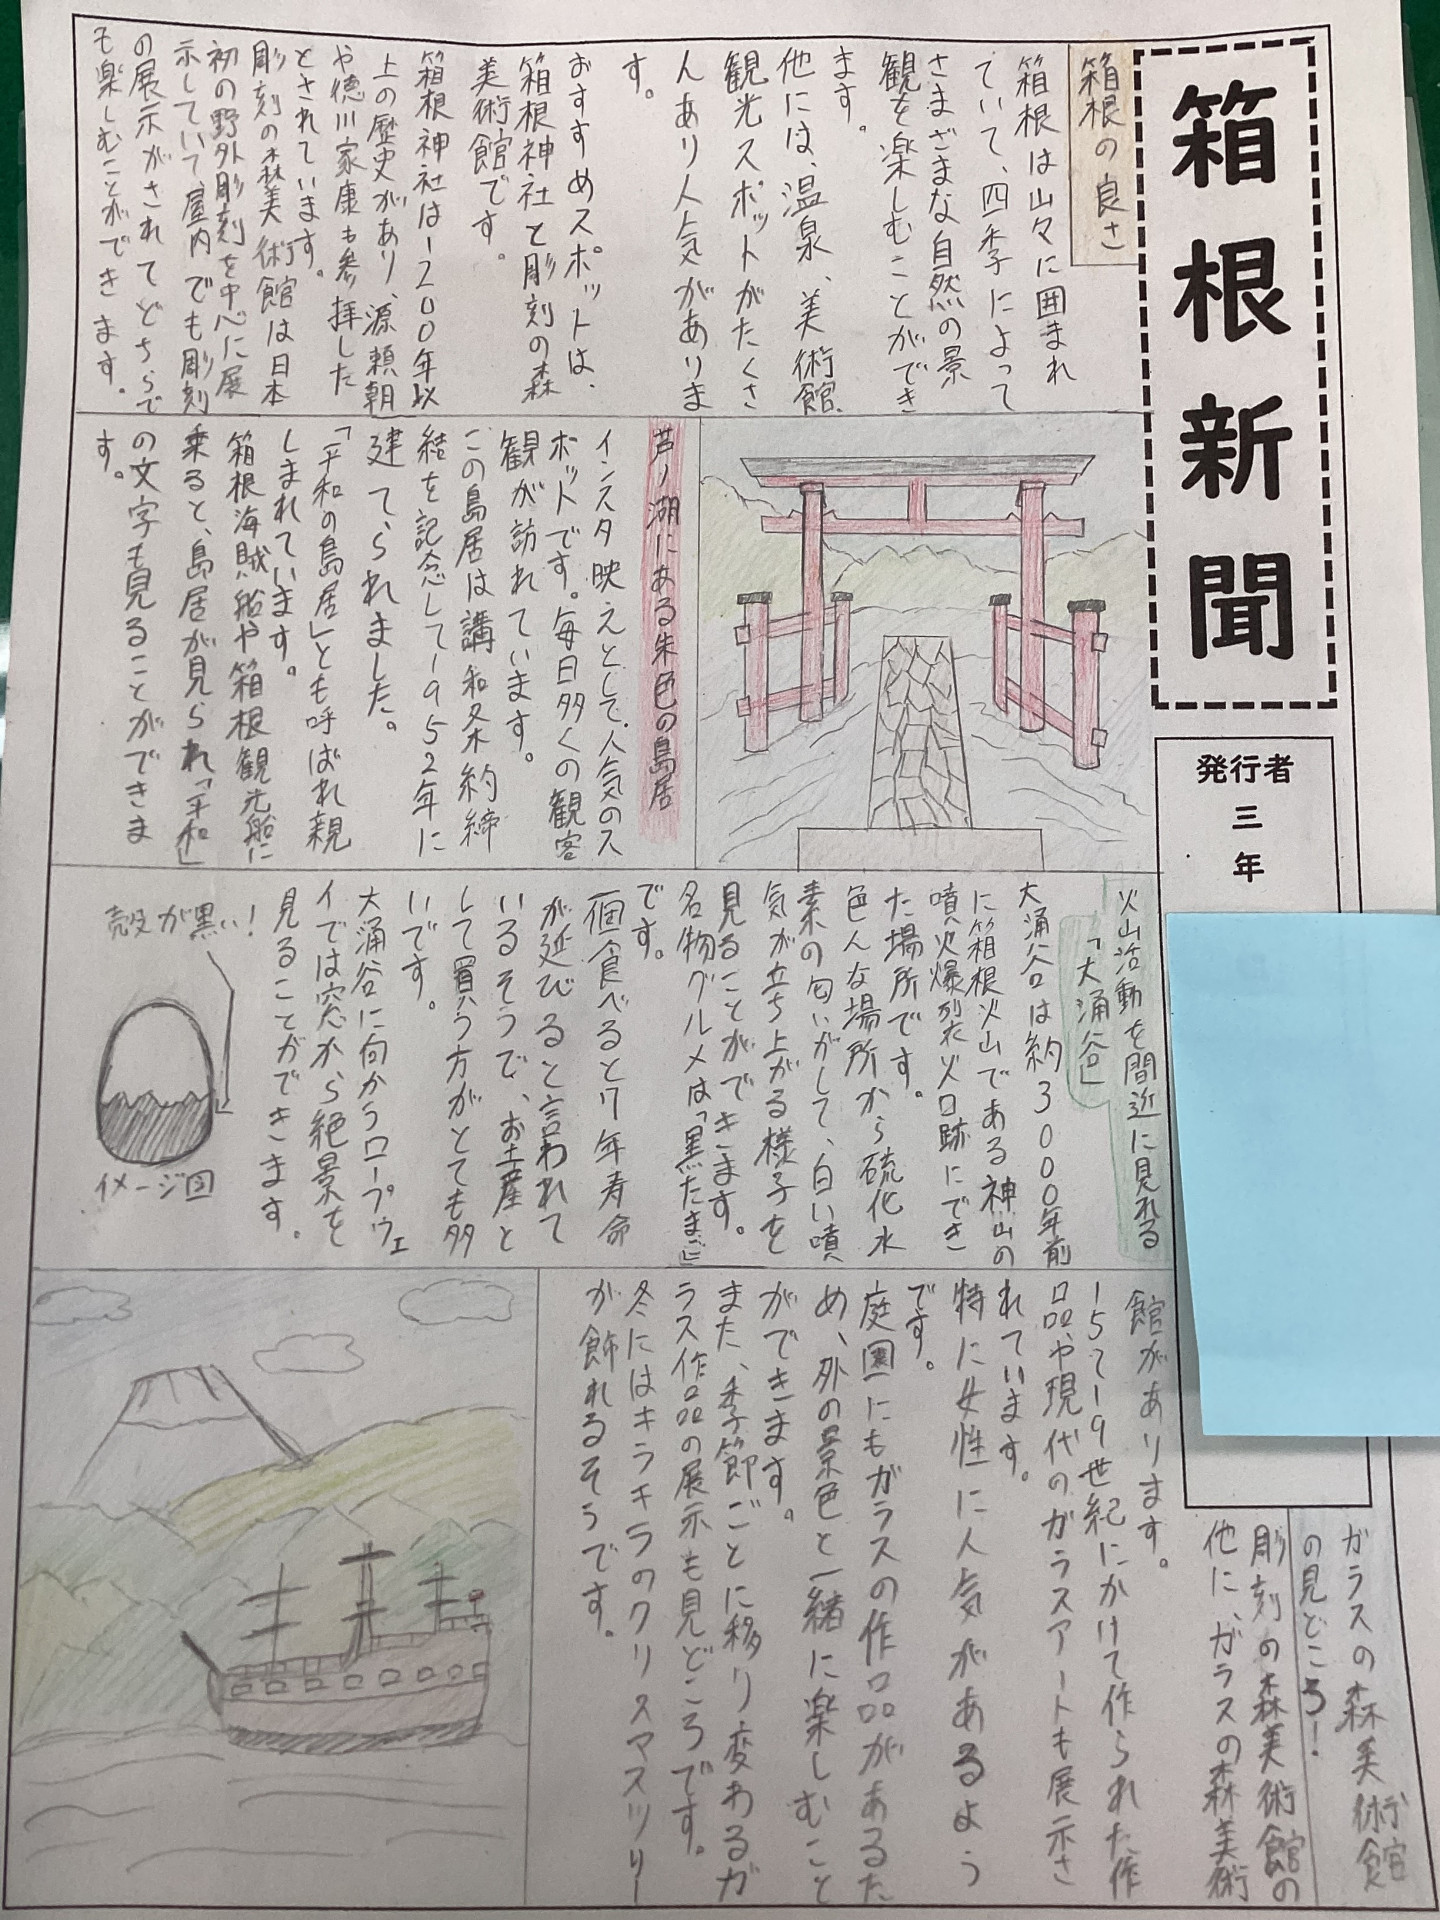 箱根新聞
発行者
三
年
箱根の良さ
箱根は山々に囲まれ
ていて、四季によって
さまざまな自然の景
観を楽しむことができ
ます。
他には、温泉、美術館、
観光スポットがたくさ
んあり人気がありま
す。
おすすめスポットは、
箱根神社と彫刻の森
美術館です。
箱根神社は1200年以
上の歴史があり、源頼朝
や徳川家康も参拝した
とされています。
彫刻の森美術館は日本
初の野外彫刻を中心に展
示していて、屋内でも彫刻
の展示がされてどちらで
も楽しむことができます。
芦ノ湖にある朱色の島居
インスタ映えとして、人気のス
ポットです。毎日多くの観客
観が訪れています。
この島居は講和条約締
結を記念して1952年に
建てられました。
「平和の島居」とも呼ばれ親
しまれています。
箱根海賊船や箱根観光船に
乗ると、島居が見られ「平和」
の文字も見ることができま
す。
火山活動を間近に見れる
「大涌谷」
大涌谷は約3000年前
に箱根火山である神山の
噴火爆烈た火口跡にでき
た場所です。
色んな場所から硫化水
素の匂いがして、白い噴
気が立ち上がる様子を
見ることができます。
名物グルメは「黒たまご」
です。
一個食べると7年寿命
が延びると言われて
いるそうで、お土産と
して買う方がとても多
いです。
大涌谷に向かうロープウェ
イでは窓から絶景を
見ることができます。
殻が黒い!
イメージ図
ガラスの森美術館
の見どころ!
彫刻の森美術館の
他に、ガラスの森美術
館があります。
15て19世紀にかけて作られた作
品や現代のガラスアートも展示さ
れています。
特に女性に人気があるよう
です。
庭園にもガラスの作品があるた
め、外の景色と一緒に楽しむこと
ができます。
また、季節ごとに移り変わるガ
ラス作品の展示も見どころです。
冬にはキラキラのクリスマスツリー
が飾れるそうです。